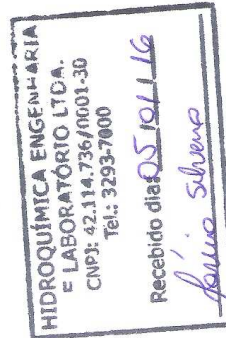 HIDROQUÍMICA ENGENHARIA
E LABORATÓRIO LTDA.
CNPJ: 42.114.736/0001-30
Tel.: 3293-7000
Recebido dia: 05/01/16